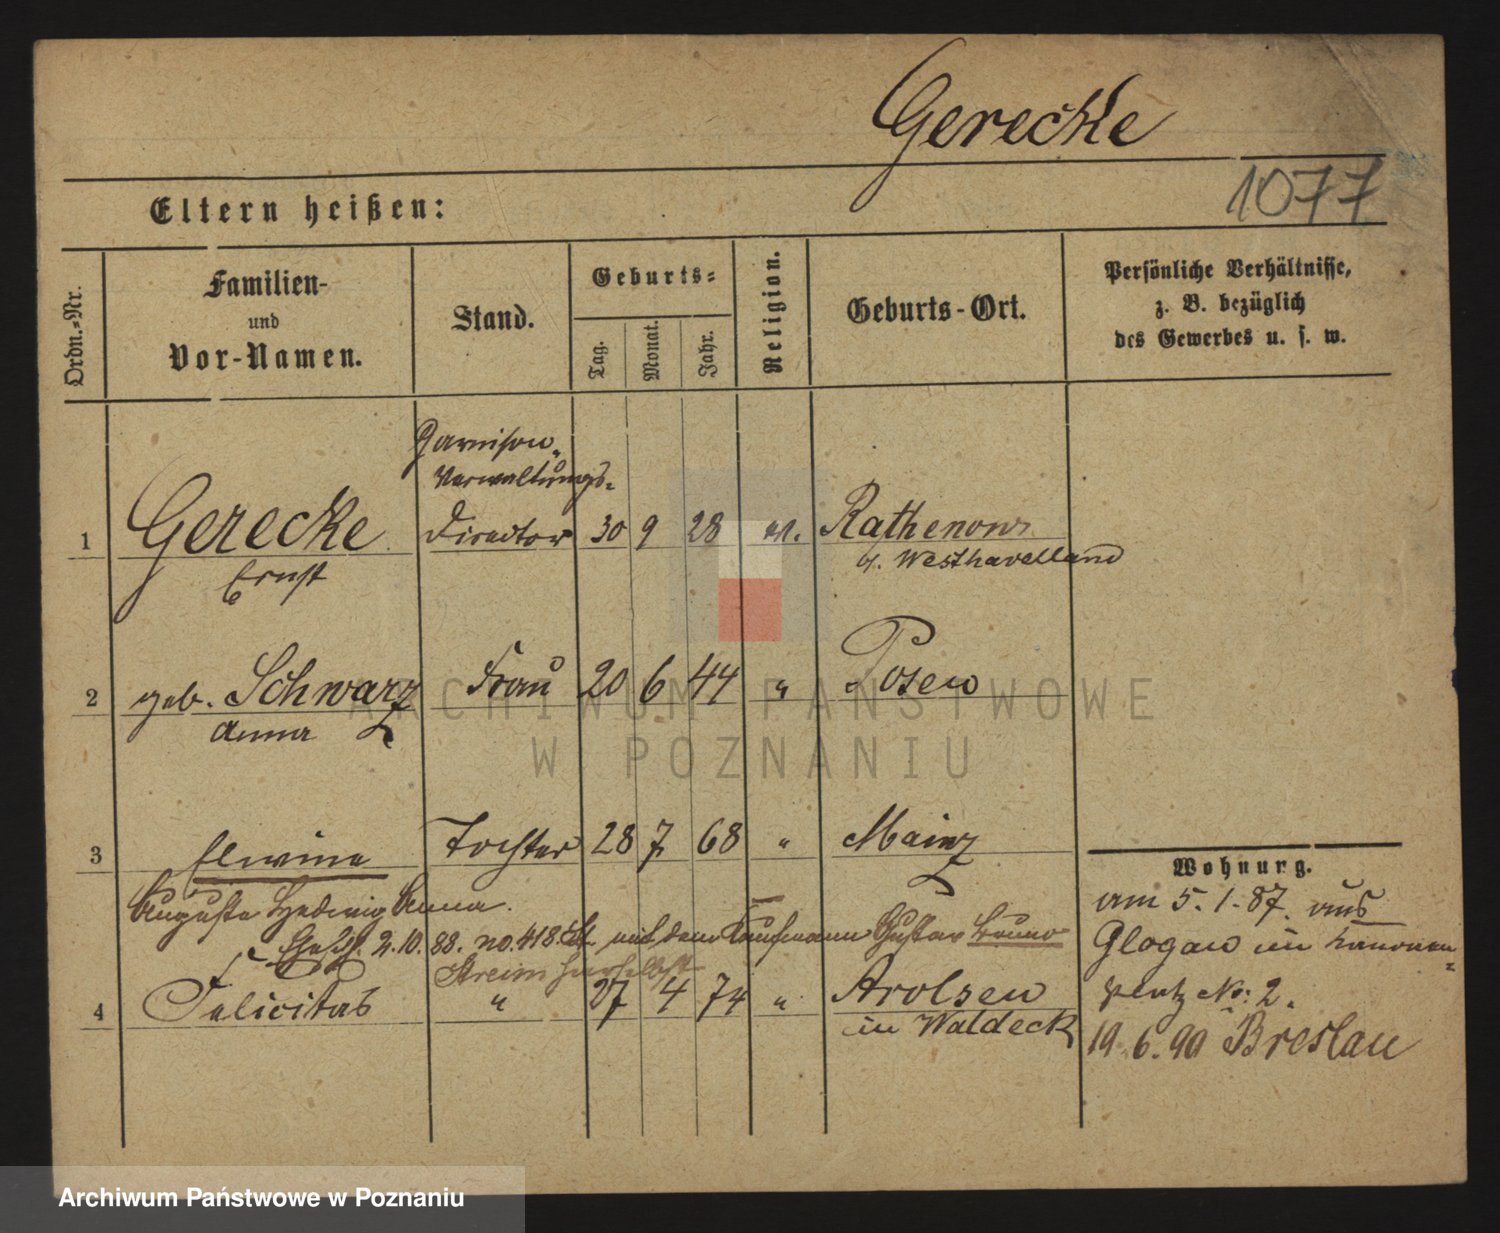 Gerecke
1077
Eltern heißen:
Ordn.-Nr.
Familien-
und
Vor-Namen.
Stand.
Geburts-
Tag.
Monat.
Jahr.
Religion.
Geburts-Ort.
Persönliche Verhältnisse,
z. B. bezüglich
des Gewerbes u. s. w.
Garnison-
Verwaltungs-
1 Gerecke Director 30 9 28 ev. Rathenow
Ernst Westhavelland
2 geb. Schwarz Frau 20 6 44 " Posen
Anna
3 Elwine Tochter 28 7 68 " Mainz
Auguste Hedwig Anna.
Ehesch. 2.10.88. no. 418. mit dem Kaufmann Gustav Bruno
4 Felicitas " 27 4 74 " Arolsen
in Waldeck
Wohnung.
am 5.1.87. aus
Glogau in
No: 2.
19.6.90 Breslau
ARCHIWUM PAŃSTWOWE
W POZNANIU
Archiwum Państwowe w Poznaniu